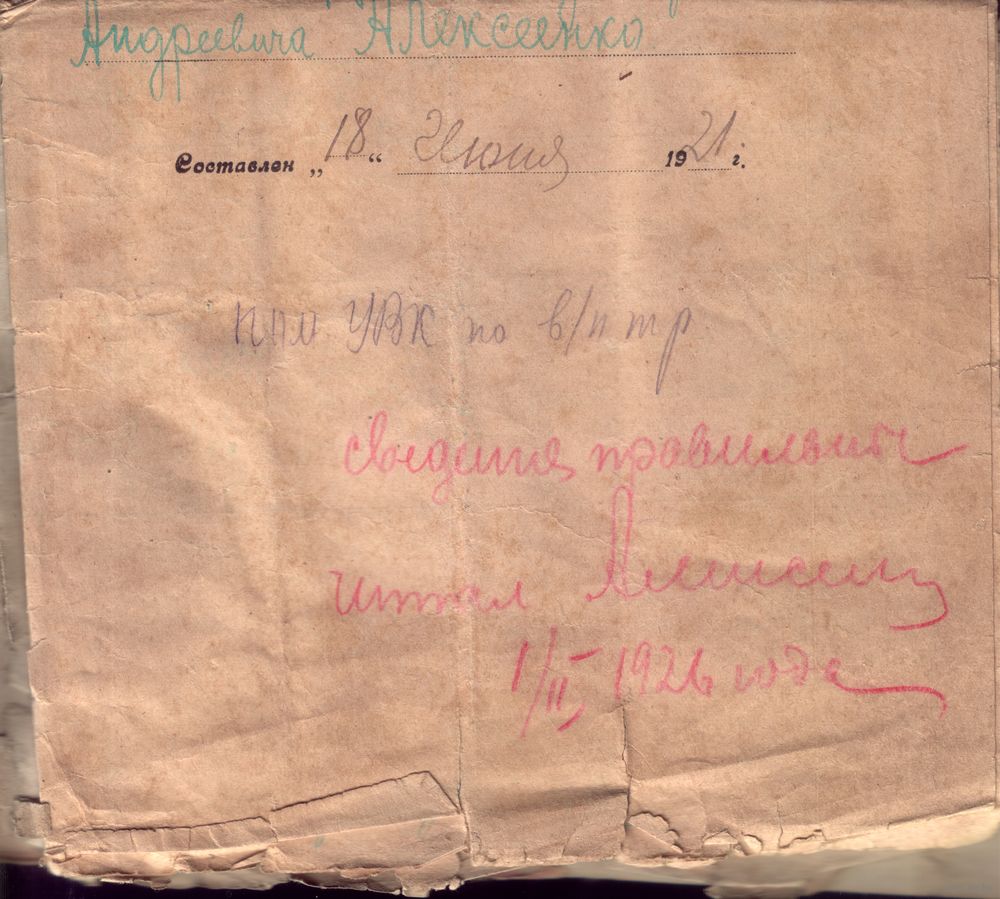 Андреевича Алексеенко
Составлен „18“ Июня 1921 г.
УВК по в/п тр
сведения правильны
читал Алексеен
1/II 1926 года